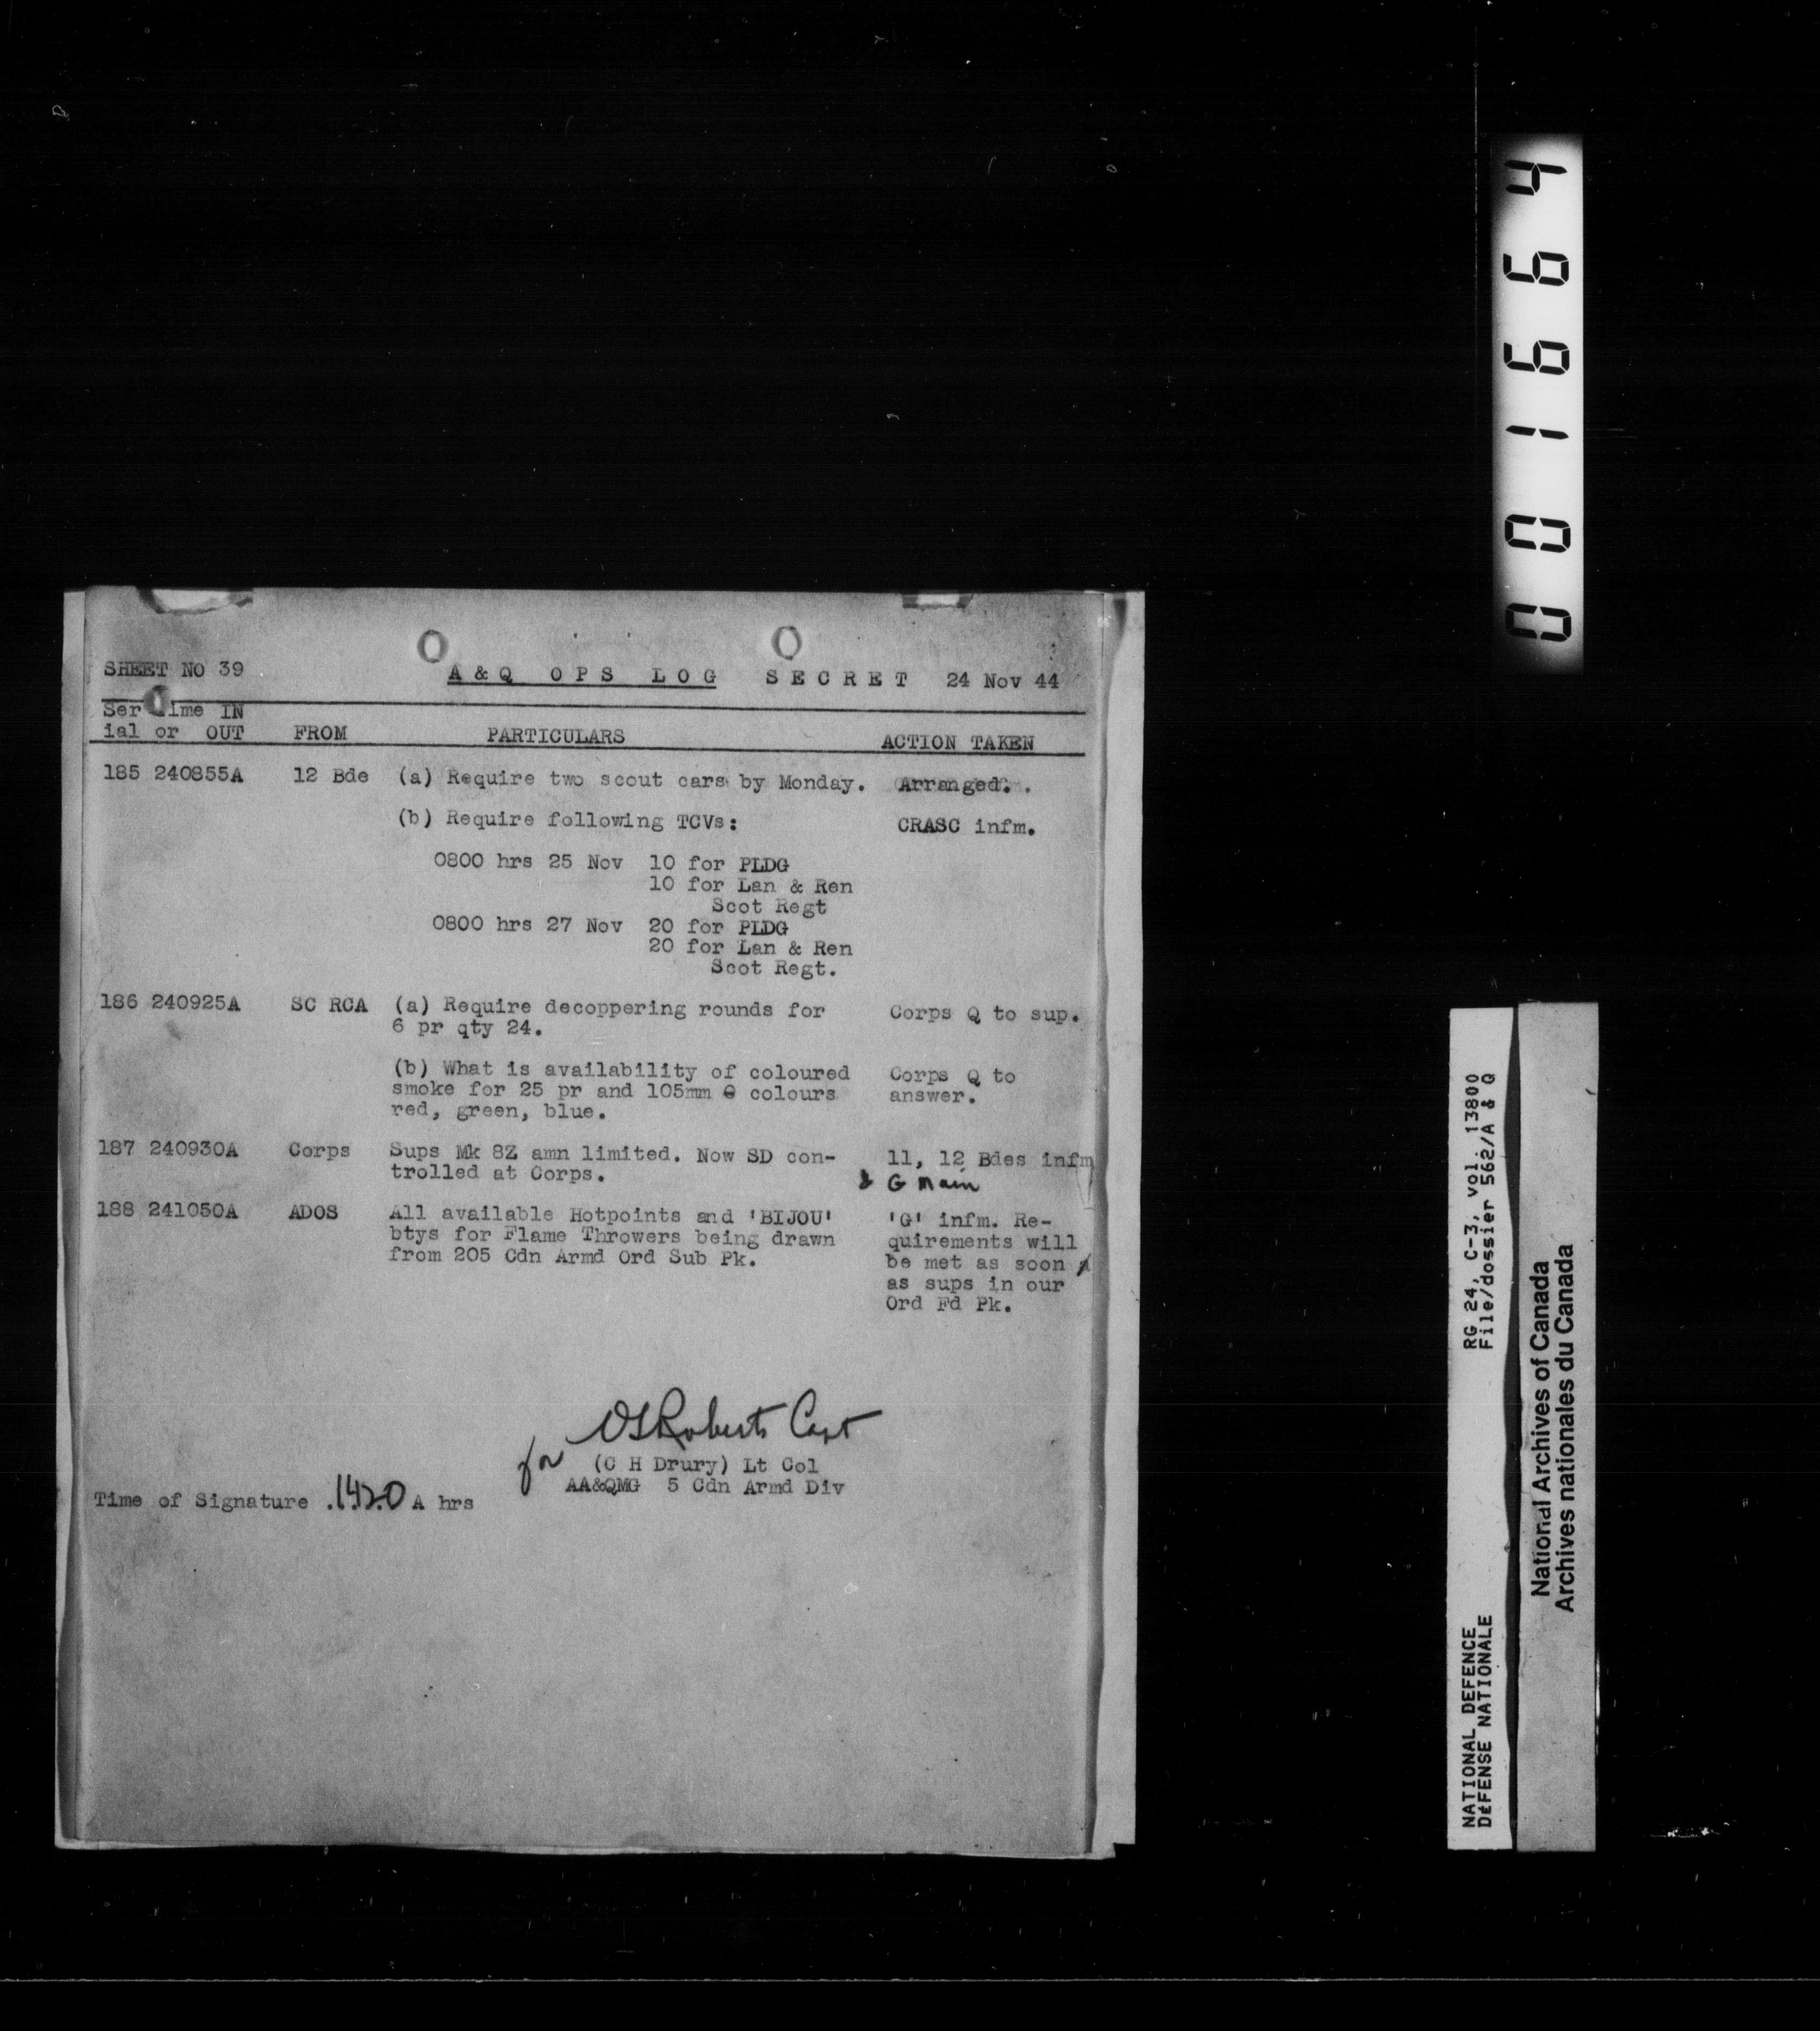 SHEET NO 39
A & Q OPS LOG SECRET 24 Nov 44
Ser Time IN
ial or OUT FROM PARTICULARS ACTION TAKEN
185 240855A 12 Bde (a) Require two scout cars by Monday. Arranged.
(b) Require following TCVs: CRASC infm.
0800 hrs 25 Nov 10 for PLDG
10 for Lan & Ren
Scot Regt
0800 hrs 27 Nov 20 for PLDG
20 for Lan & Ren
Scot Regt.
186 240925A SC RCA (a) Require decoppering rounds for Corps Q to sup.
6 pr qty 24.
(b) What is availability of coloured Corps Q to
smoke for 25 pr and 105mm colours answer.
red, green, blue.
187 240930A Corps Sups Mk 8Z amn limited. Now SD con- 11, 12 Bdes infm
trolled at Corps. & G Main
188 241050A ADOS All available Hotpoints and 'BIJOU' 'G' infm. Re-
btys for Flame Throwers being drawn quirements will
from 205 Cdn Armd Ord Sub Pk. be met as soon
as sups in our
Ord Fd Pk.
Roberts Capt
for (C H Drury) Lt Col
AA&QMG 5 Cdn Armd Div
Time of Signature .1420 A hrs
001664
RG 24, C-3, vol. 13800
File/dossier 562/A & Q
NATIONAL DEFENCE
DÉFENSE NATIONALE
National Archives of Canada
Archives nationales du Canada